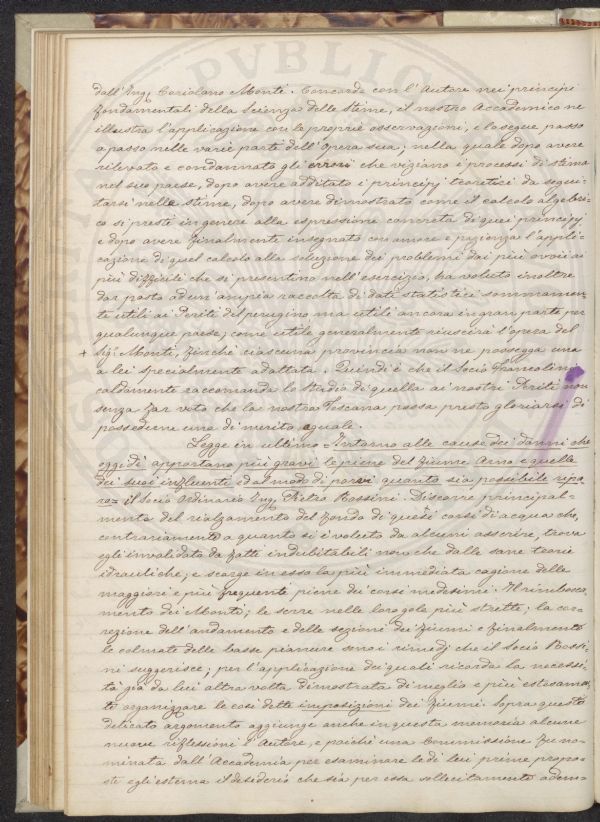 dall'Ing. Coriolano Monti. Concorde con l'Autore nei principii
fondamentali della Scienza delle stime, il nostro Accademico ne
illustra l'applicazione con le proprie osservazioni, e lo segue passo
a passo nelle varie parti dell'opera sua; nella quale dopo avere
rilevato e condannato gli errori che viziano i processi di stima
nel suo paese, dopo avere additato i principj teoretici da segui-
tarsi nelle stime, dopo avere dimostrato come il calcolo algebri-
co si presti in genere alla espressione concreta di quei principj
e dopo avere finalmente insegnato con amore e pazienza l'appli-
cazione di quel calcolo alla soluzione dei problemi dai più ovvii ai
più difficili che si presentino nell'esercizio, ha voluto inoltre
dar posto ad un'ampia raccolta di dati statistici sommamen-
te utili ai Periti del perugino ma utili ancora in gran parte per
qualunque paese; come utile generalmente riuscirà l'opera del
+ Sig. Monti, finchè ciascuna provincia non ne possegga una
a lei specialmente adattata. Quindi è che il Socio Francolini
caldamente raccomanda lo studio di quella ai nostri Periti non
senza far voto che la nostra Toscana possa presto gloriarsi di
possederne una di merito eguale.
Legge in ultimo = Intorno alle cause dei danni che
oggidì apportano più gravi le piene del fiume Arno e quelle
dei suoi influenti ed al modo di porvi quanto sia possibile ripa-
ro = il Socio Ordinario Ing. Pietro Rossini. Discorre principal-
mente del rialzamento del fondo di questi corsi di acqua che,
contrariamente a quanto si è voluto da alcuni asserire, trova
egli invalidato da fatti indubitabili non che dalle sane teorie
idrauliche, e scorge in esso la più immediata cagione delle
maggiori e più frequenti piene dei corsi medesimi. Il rimbosca-
mento dei Monti; le serre nelle loro gole più strette; la cor-
rezione dell'andamento e delle sezioni dei fiumi e finalmente
le colmate delle basse pianure sono i rimedj che il Socio Rossi-
ni suggerisce; per l'applicazione dei quali ricorda la necessi-
tà già da lui altra volta dimostrata di meglio e più estesamen-
te organizzare le così dette imposizioni dei fiumi. Sopra questo
delicato argomento aggiunge anche in questa memoria alcune
nuove riflessioni l'Autore, e poichè una Commissione fu no-
minata dall'Accademia per esaminare le di lui prime propo-
ste egli esterna il desiderio che sia per essa sollecitamente adem-